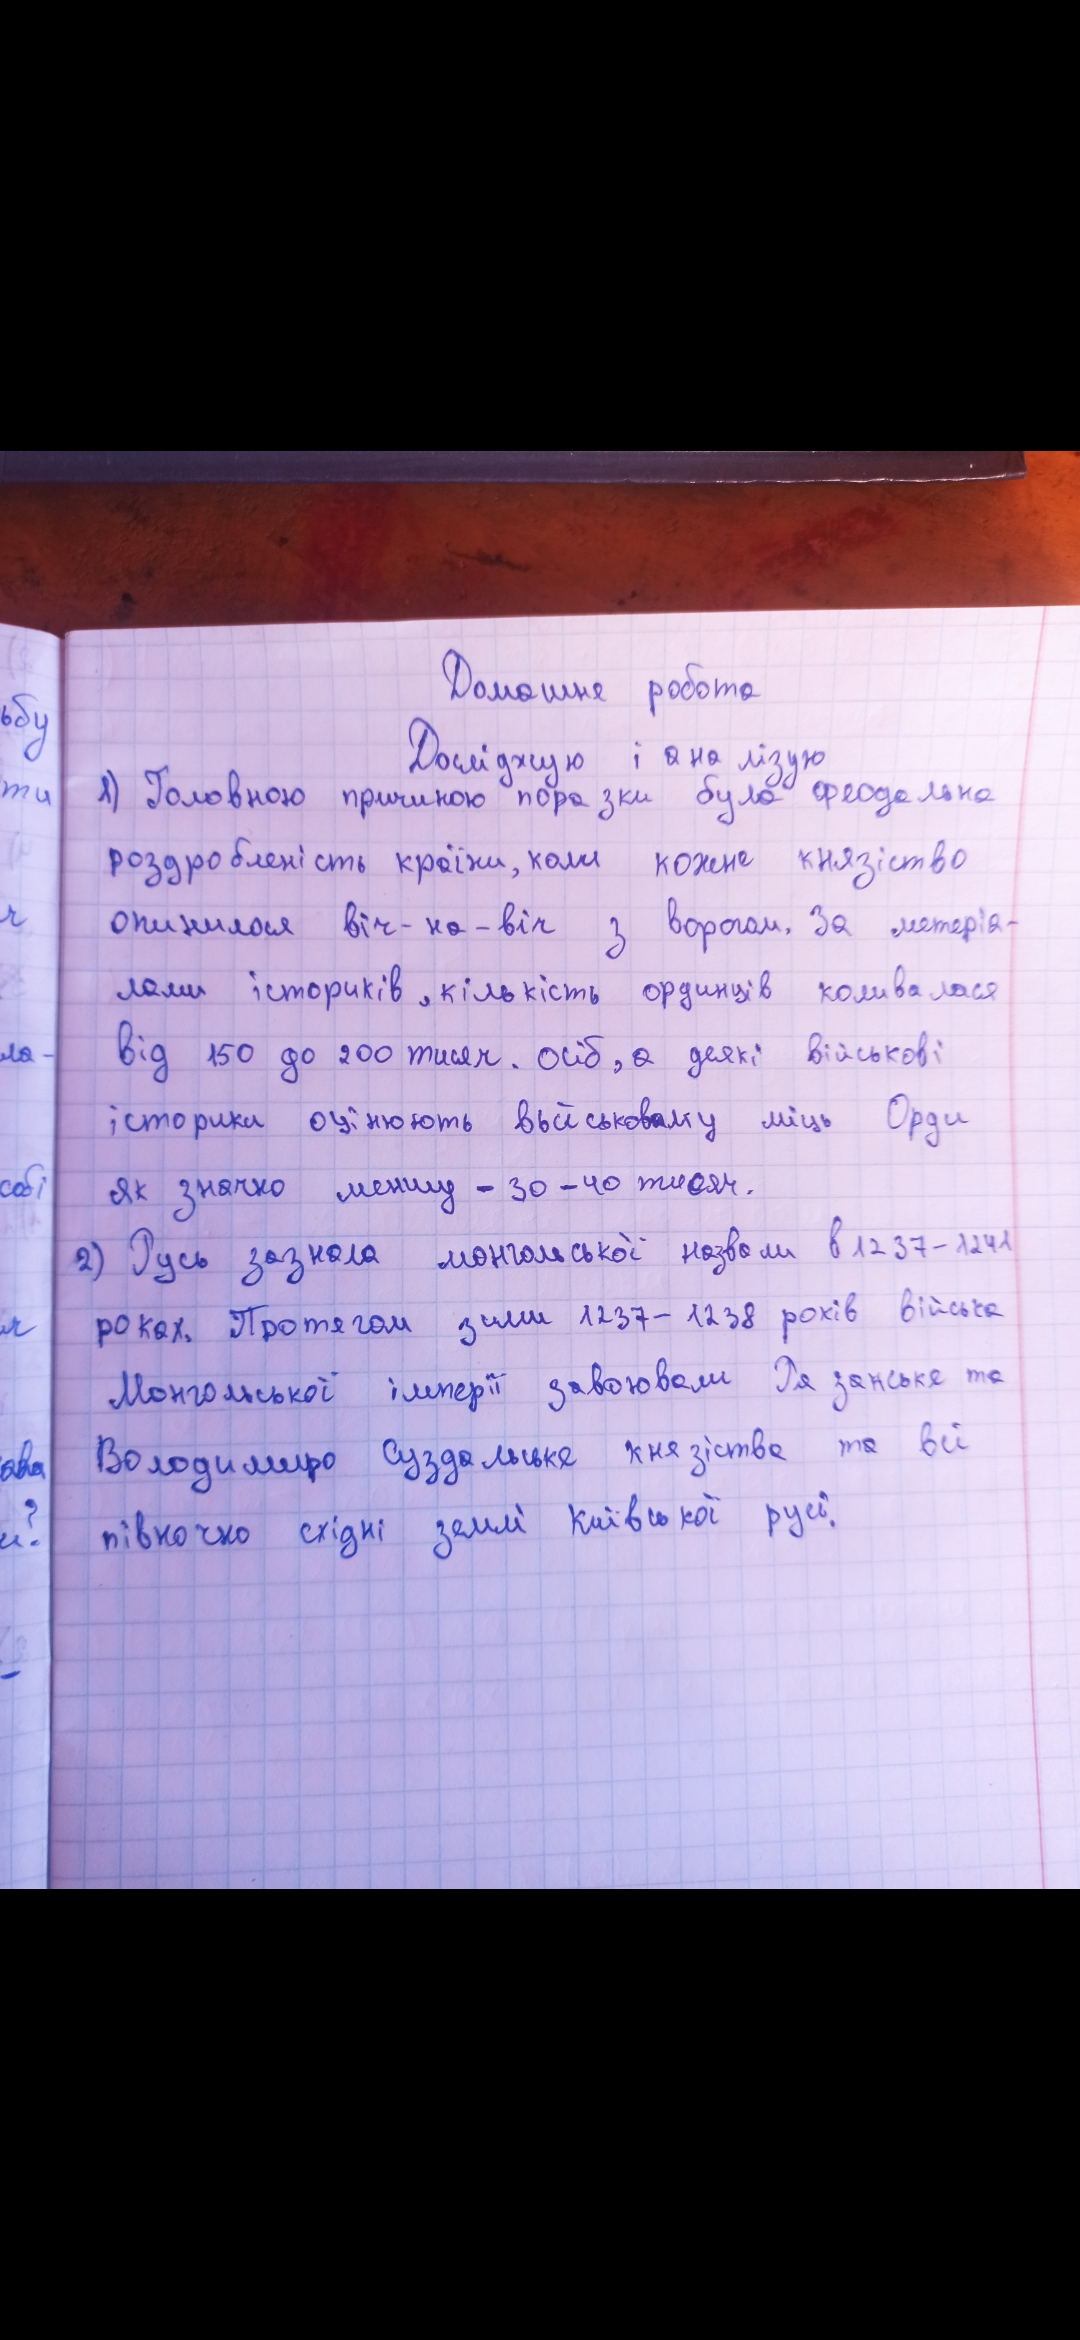 Домашне робота
Досліджую і аналізую
1) Головною причиною поразки була феодальна
роздробленість країни, коли кожне князіство
опинилося віч-на-віч з ворогом. За метеріа-
лами істориків, кількість ординців коливалася
від 150 до 200 тисяч. осіб, а деякі військові
історики оцінюють військовому міць Орди
як значно меншу - 30-40 тисяч.
2) Русь зазнала монгольської назвали в 1237-1241
роках. Протягом зими 1237-1238 років війська
Монгольської імперії завоювали Рязанське та
Володимиро Суздальське князіства та всі
північно східні землі Київської русі.
ьбу
ти
ч
ла-
собі
ава
и?